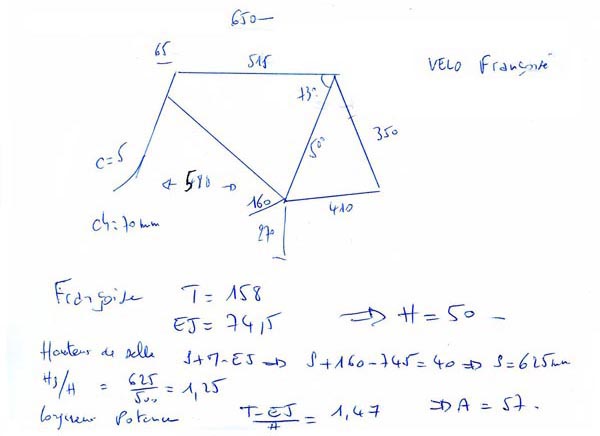 650
65
515
VELO Françoise
73°
C=5
50
350
← 590 →
160
410
Ch=70mm
270
Françoise T = 158
EJ = 74,5 ⇒ H = 50
Hauteur de selle S+M-EJ ⇒ S+160-745=40 ⇒ S=625mm
HS/H = 625/500 = 1,25
Longueur Potence T-EJ/A = 1,47 ⇒ A = 57.